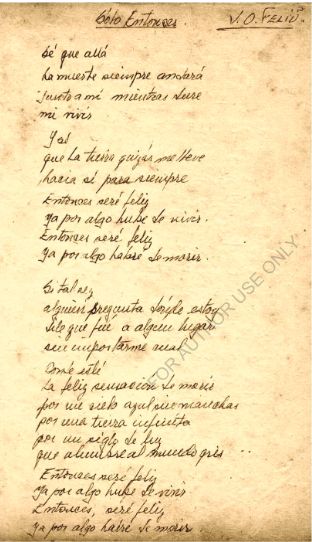 Sólo Entonces. J. O. FELIÚ.
Sé que allá
La muerte siempre andará
junto a mí mientras dure
mi vivir
Y sé
que la tierra quizás me lleve
hacia sí para siempre
Entonces seré feliz
Ya por algo hube de vivir.
Entonces seré feliz
Ya por algo habré de morir.
Si tal vez
alguien pregunta donde estoy
Dile que fuí a algún lugar
sin importarme cual
La feliz sensación de morir
por un cielo azul sin manchas
por una tierra infinita
por un siglo de luz
que alumbre al mundo gris...
Entonces seré feliz
Ya por algo hube de vivir
Entonces, seré feliz
Ya por algo habré de morir..
FOR AUTHOR USE ONLY